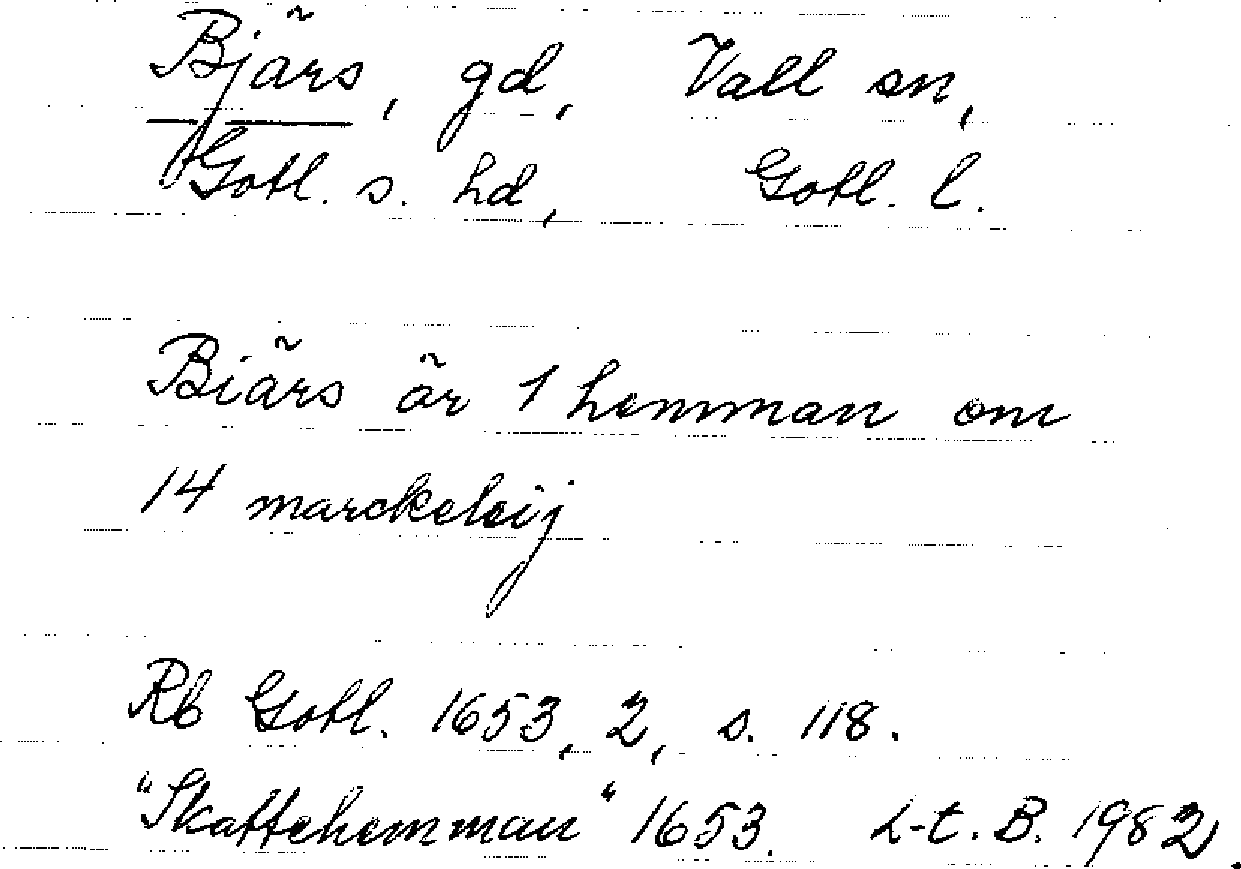 Bjärs, gd, Vall sn,
Gotl. s. hd, Gotl. l.
Biärs är 1 hemman om
14 marckeleij
Rb Gotl. 1653, 2, s. 118.
"Skattehemman" 1653. L-t. B. 1982.